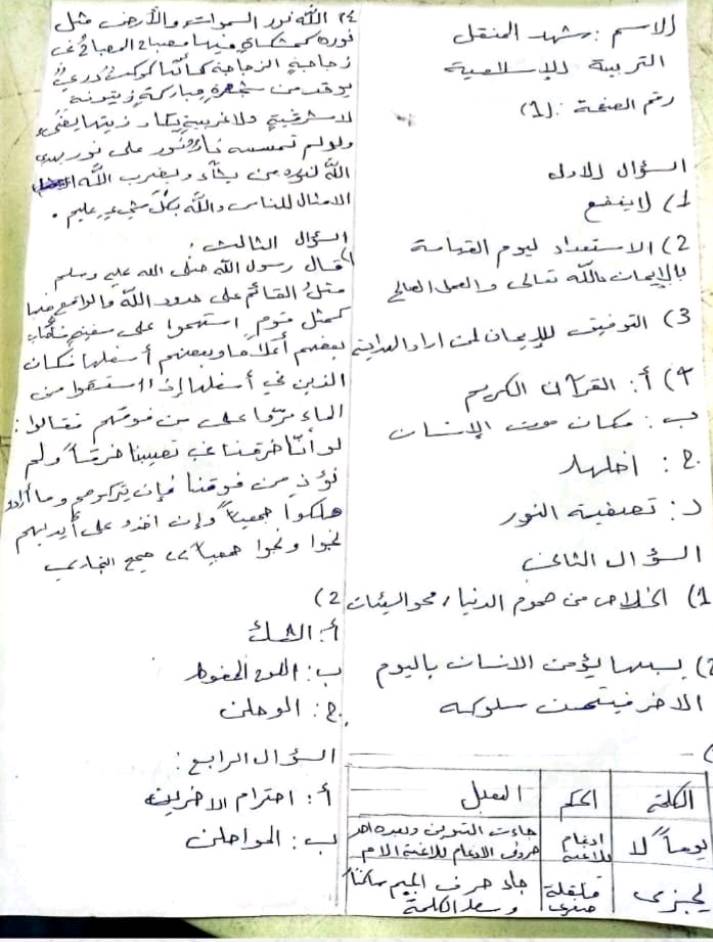 الاسم: شهد المنقل
التربية الاسلامية
رقم الصفحة: (1)
السؤال الاول
1) لاينفع
2) الاستعداد ليوم القيامة
بالإيمان بالله تعالى والعمل الصالح
3) التوفيق للإيمان لمن اراد الهداية
4) أ: القرآن الكريم
ب: مكان موت الإنسان
ج: اخلهلا
د: تصفية النور
السؤال الثاني
1) الخلاص من هموم الدنيا، محو السيئات
2) بسببها يؤمن الانسان باليوم
الاخر فيتحسن سلوكه
الكلمة الحكم التعليل
يوماً لا ادغام بلاغنة جاءت التنوين وبعده احد حروف الادغام بلاغنة الام
يجزى قلقلة صغرى جاء حرف الجيم ساكناً وسط الكلمة
٢٤ الله نور السموات والأرض مثل
نوره كمشكاةٍ فيها مصباح المصباح في
زجاجةٍ الزجاجة كأنها كوكبٌ دريٌ
يوقد من شجرةٍ مباركةٍ زيتونة
لا شرقيةٍ ولا غربيةٍ يكاد زيتها يضيء
ولو لم تمسسه نارٌ نور على نور يهدي
الله لنوره من يشاء ويضرب الله
الامثال للناس والله بكل شيءٍ عليم.
السؤال الثالث:
1) قال رسول الله صلى الله عليه وسلم
مثل القائم على حدود الله والواقع فيها
كمثل قومٍ استهموا على سفينةٍ فأصاب
بعضهم أعلاها وبعضهم أسفلها فكان
الذين في أسفلها إذا استقوا من
الماء مرّوا على من فوقهم فقالوا:
لو أنّا خرقنا في نصيبنا خرقاً ولم
نؤذ من فوقنا فإن تركوهم وما أرادوا
هلكوا جميعاً وإن اخذوا على أيديهم
نجوا ونجوا جميعاً" صحيح البخاري
2)
أ: الشك
ب: اللوح المحفوظ
ج: الوهن
السؤال الرابع:
أ: احترام الاخرين
ب: المواطن